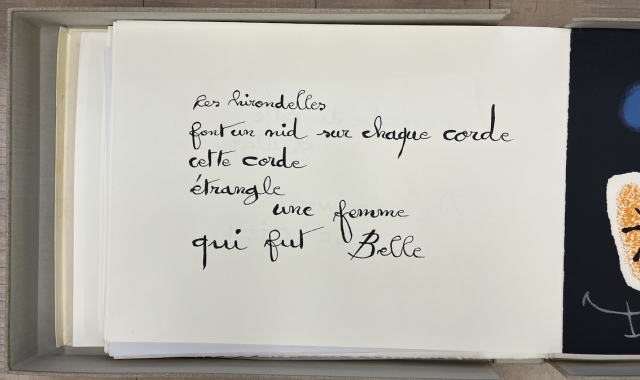 Les hirondelles
font un nid sur chaque corde
cette corde
étrangle
une femme
qui fut Belle